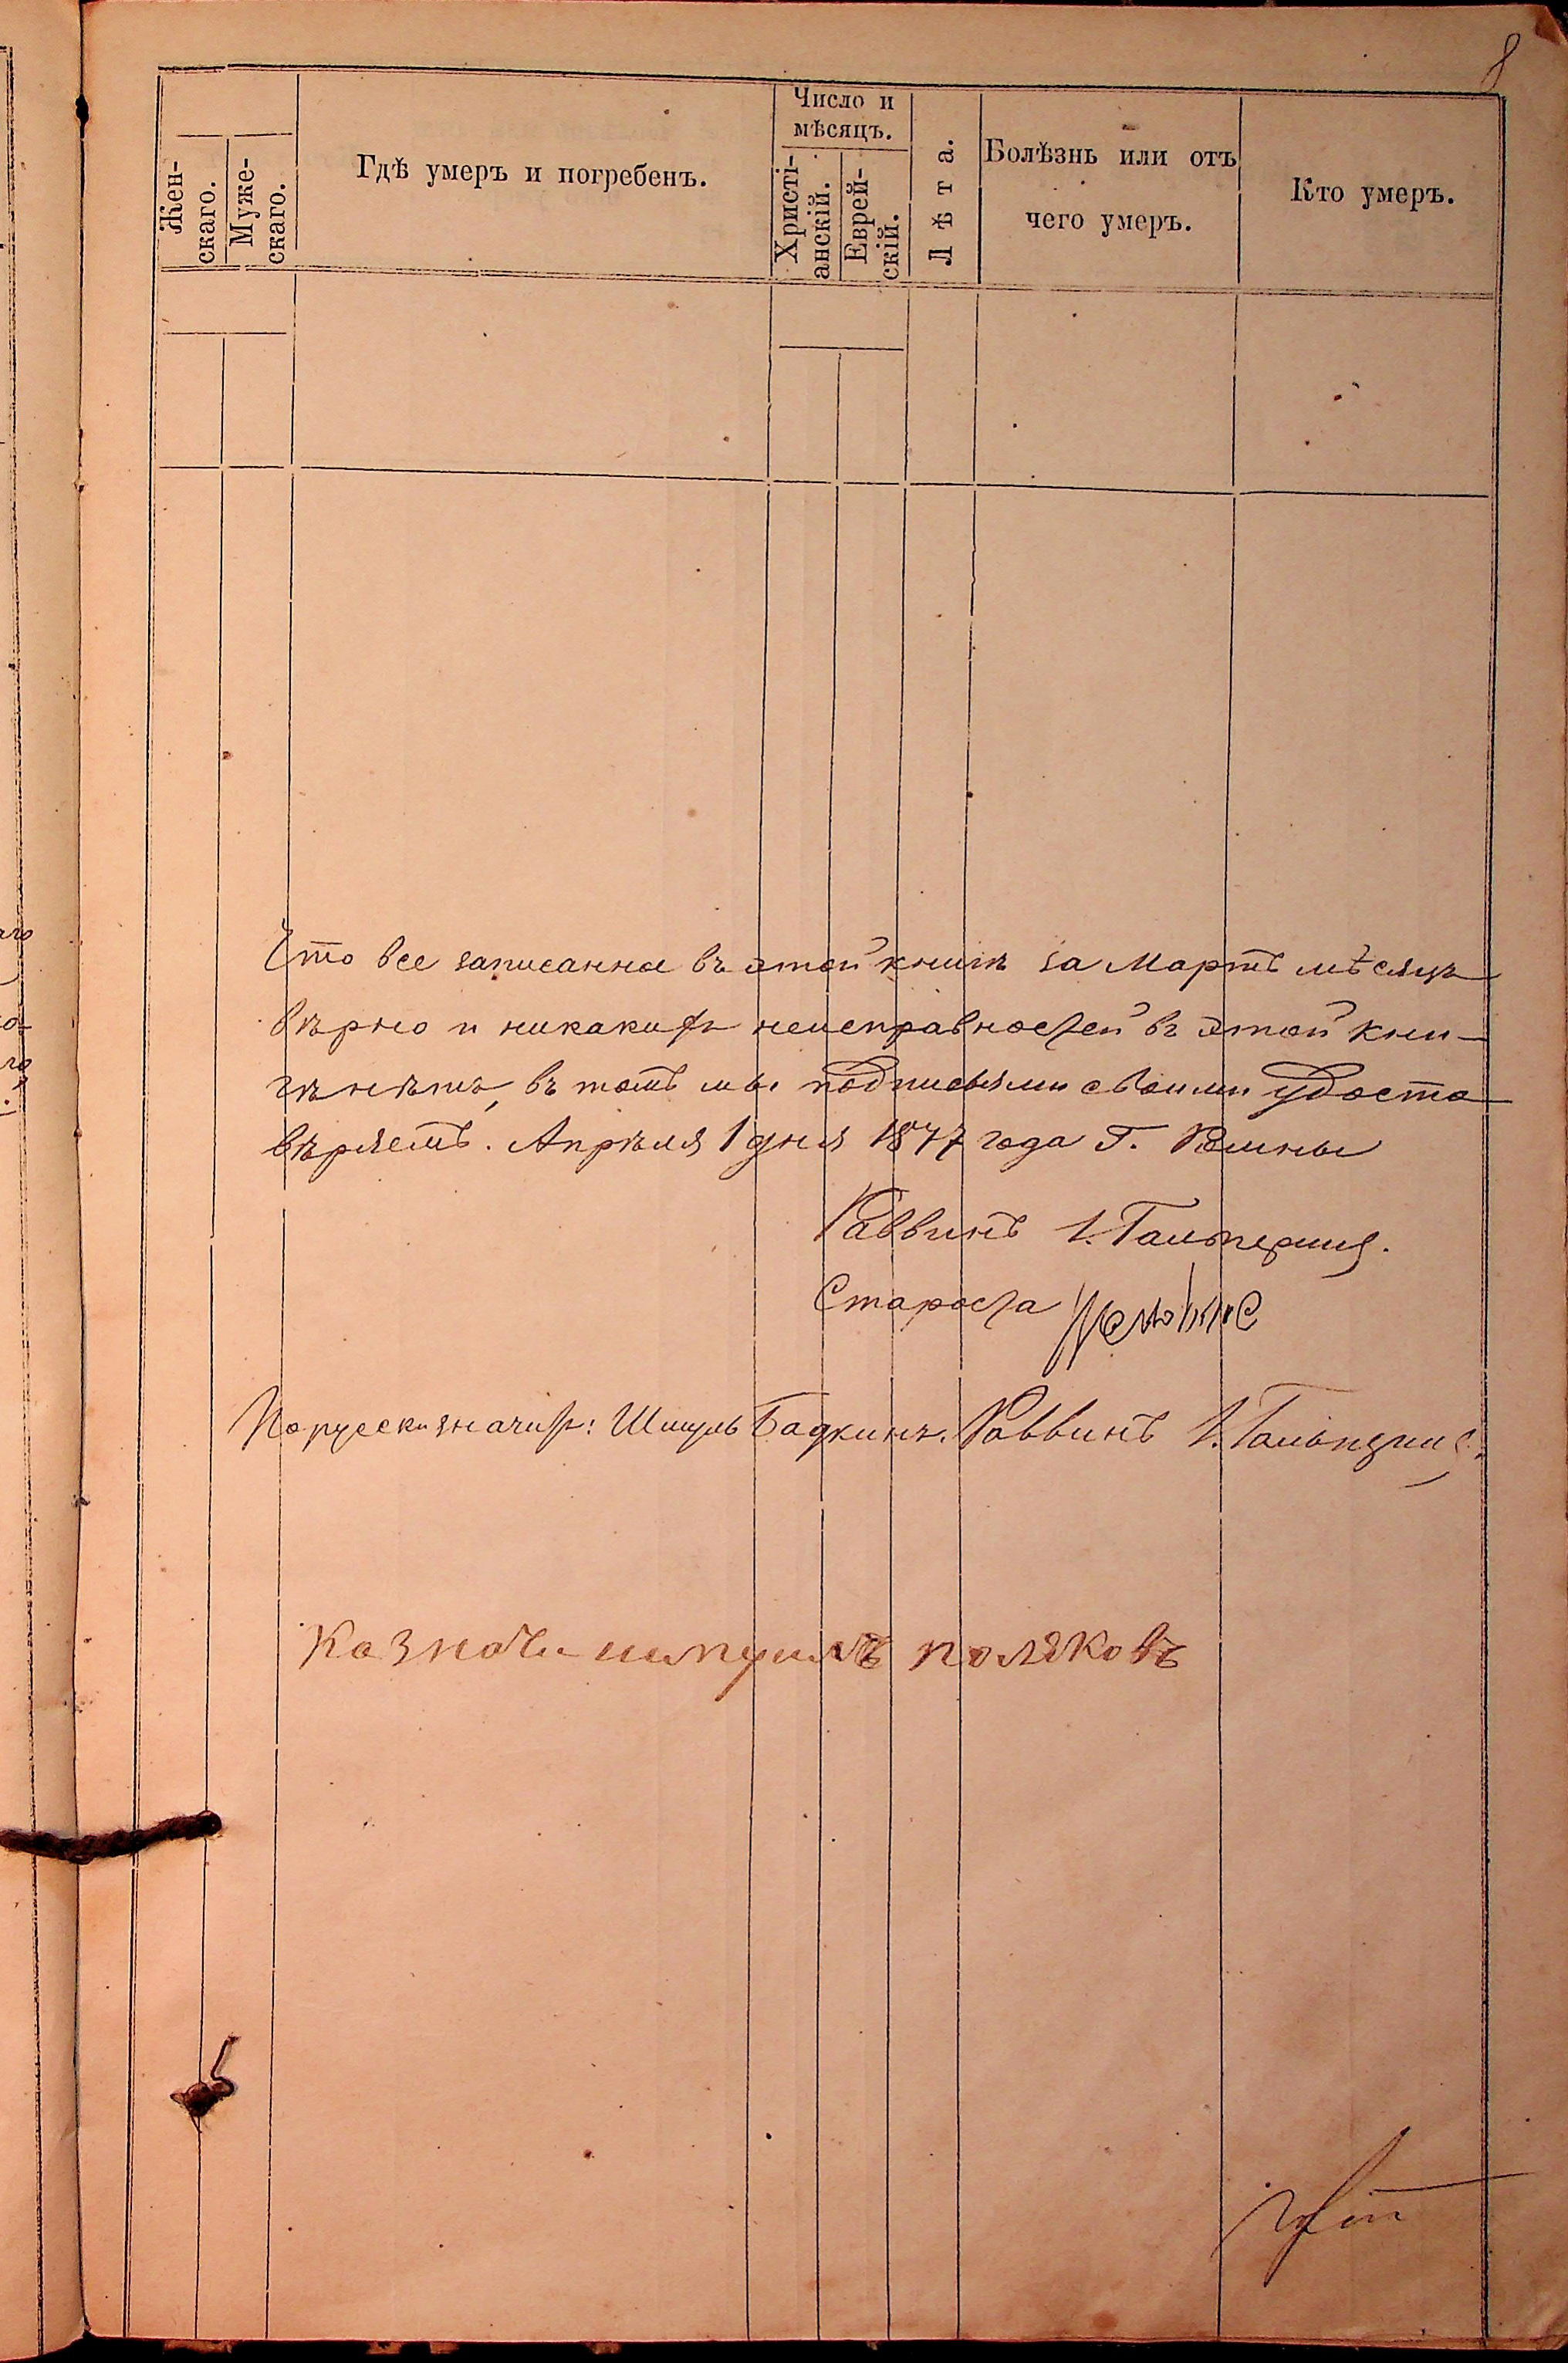 8
Жен-
скаго.
Муже-
скаго.
Гдѣ умеръ и погребенъ.
Число и
мѣсяцъ.
Христі-
анскій.
Еврей-
скій.
Лѣта.
Болѣзнь или отъ
чего умеръ.
Кто умеръ.
Что все записанное въ этой книгѣ за Мартъ мѣсяцъ
вѣрно и никакихъ неисправностей въ этой кни-
гѣ нѣтъ, въ томъ мы подписями своими удосто
вѣряемъ. Апрѣля 1 дня 1877 года Г. Ромны
Раввинъ І. Гальперинъ.
Староста
По русски значитъ: Шмуль Бадкинъ. Раввинъ І. Гальперинъ
Казначи поляковъ